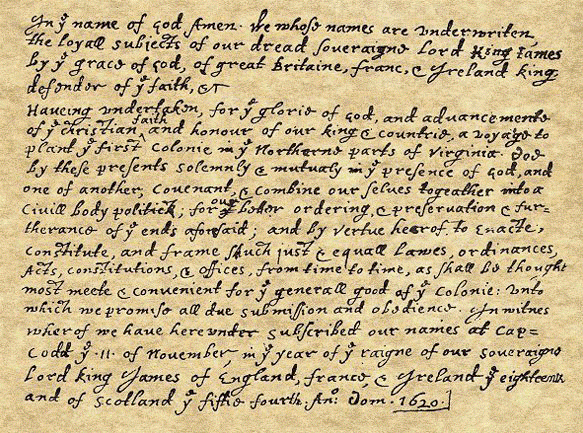 In yͤ name of god Amen. We whose names are vnderwriten,
the loyall subjects of our dread soveraigne Lord King James
by yͤ grace of God, of great Britaine, franc, & Ireland king,
defender of yͤ faith, &c
Haveing vndertaken, for yͤ glorie of God, and advancemente
of yͤ christian ^faith and honour of our king & countrie, a voyage to
plant yͤ first colonie in yͤ Northerne parts of Virginia. Doe
by these presents solemnly & mutualy in yͤ presence of God, and
one of another, covenant, & combine our selves togeather into a
Civill body politick; for ^our better ordering, & preservation & fur=
therance of yͤ ends aforesaid; and by vertue hearof, to Enacte,
constitute, and frame shuch just & equall Lawes, ordinances,
Acts, constitutions, & offices, from time to time, as shall be thought
most meete & convenient for yͤ generall good of yͤ Colonie: vnto
which we promise all due submission and obedience. In witnes
wherof we have herevnder subscribed our names at Cap=
Codd yͤ .11. of November, in yͤ year of yͤ raigne of our soveraigne
Lord king James of England, france, & Ireland yͤ eighteenth
and of Scotland yͤ fiftie fourth. Anͦ: Dom. 1620.]